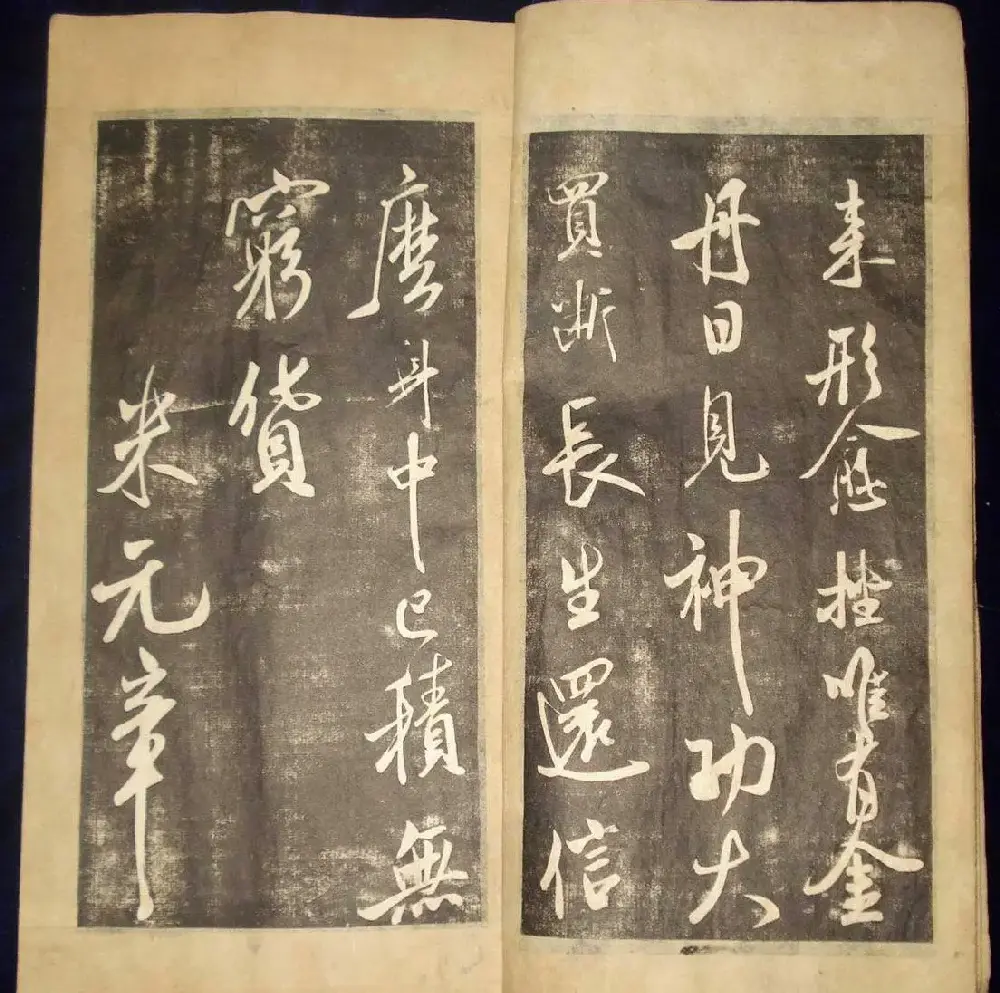 来形愈挫唯有金
丹日見神功大
買断長生還信
麽中已積無
窮貨
米元章